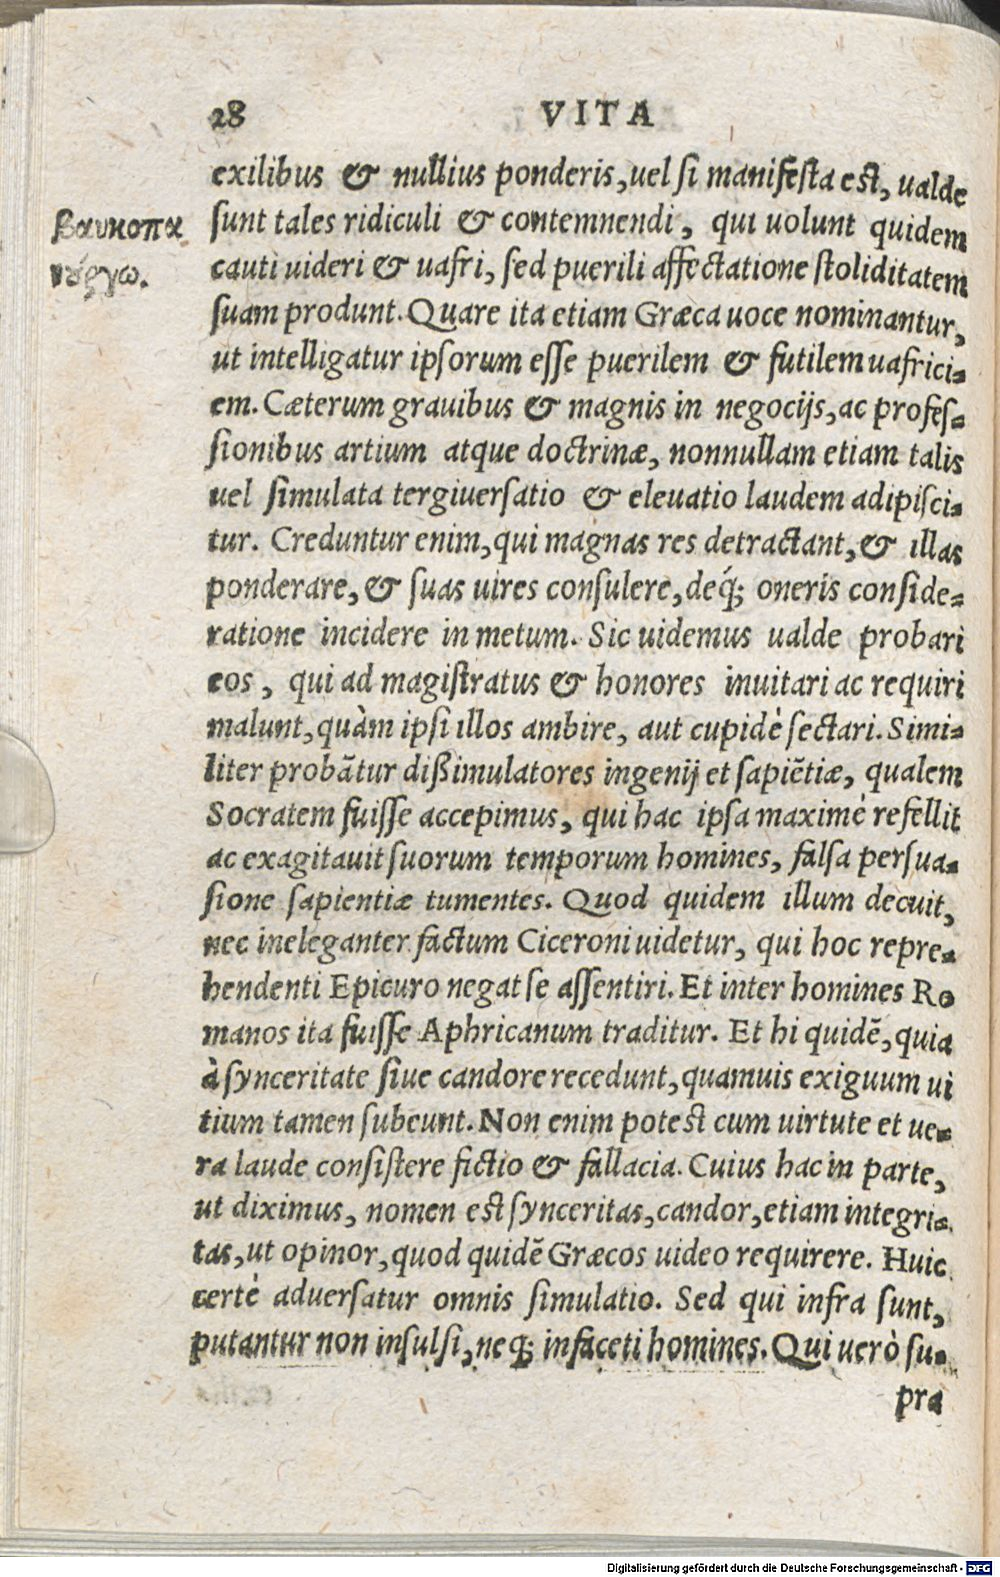 28 VITA
exilibus & nullius ponderis, uel si manifesta est, ualde
sunt tales ridiculi & contemnendi, qui uolunt quidem
cauti uideri & uafri, sed puerili affectatione stoliditatem
suam produnt. Quare ita etiam Græca uoce nominantur,
ut intelligatur ipsorum esse puerilem & futilem uafrici-
em. Cæterum grauibus & magnis in negocijs, ac profes-
sionibus artium atque doctrinæ, nonnullam etiam talis
uel simulata tergiuersatio & eleuatio laudem adipisci-
tur. Creduntur enim, qui magnas res detractant, & illas
ponderare, & suas uires consulere, deq́; oneris conside-
ratione incidere in metum. Sic uidemus ualde probari
eos, qui ad magistratus & honores inuitari ac requiri
malunt, quàm ipsi illos ambire, aut cupidè sectari. Simi-
liter probãtur dißimulatores ingenij et sapiẽtiæ, qualem
Socratem fuisse accepimus, qui hac ipsa maximè refellit
ac exagitauit suorum temporum homines, falsa persua-
sione sapientiæ tumentes. Quod quidem illum decuit,
nec ineleganter factum Ciceroni uidetur, qui hoc repre-
hendenti Epicuro negat se assentiri. Et inter homines Ro
manos ita fuisse Aphricanum traditur. Et hi quidẽ, quia
à synceritate siue candore recedunt, quamuis exiguum ui
tium tamen subeunt. Non enim potest cum uirtute et ue-
ra laude consistere fictio & fallacia. Cuius hac in parte,
ut diximus, nomen est synceritas, candor, etiam integri-
tas, ut opinor, quod quidẽ Græcos uideo requirere. Huic
certè aduersatur omnis simulatio. Sed qui infra sunt,
putantur non insulsi, neq; infaceti homines. Qui uerò su-
pra
βαυκοπα
νȣ́ργω.
Digitalisierung gefördert durch die Deutsche Forschungsgemeinschaft - DFG